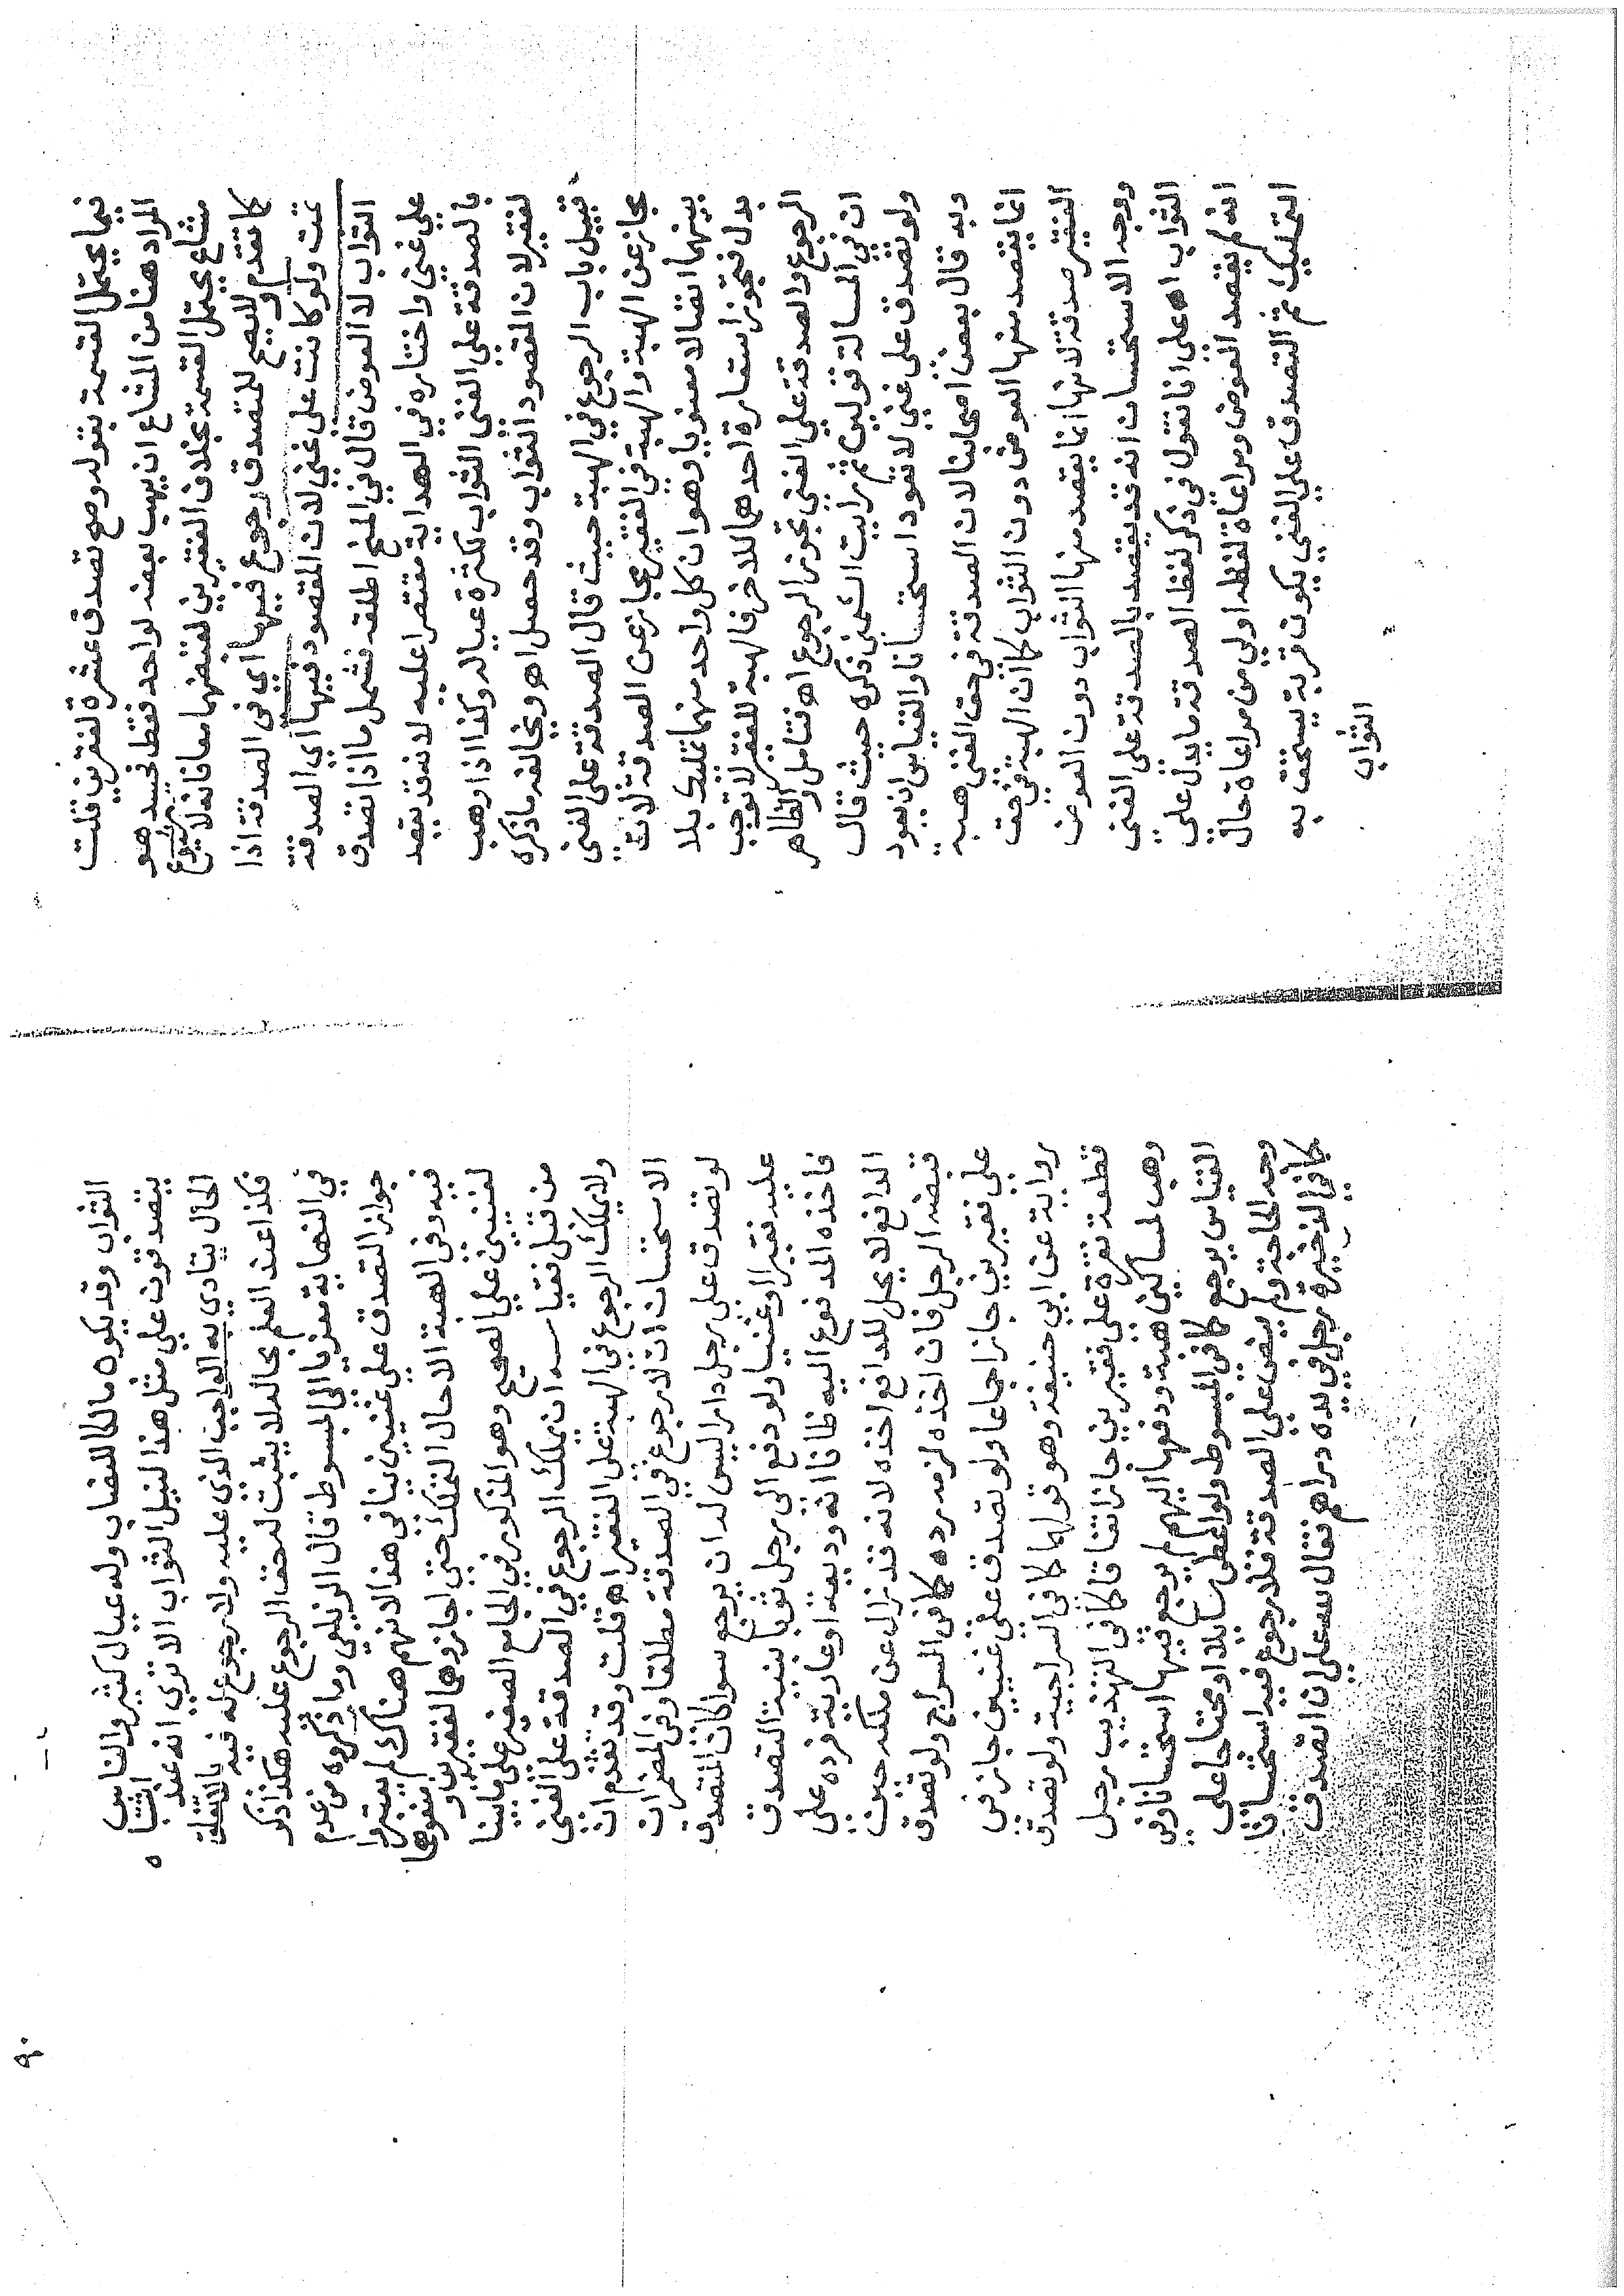 فيما يحتمل القسمة بقوله وصح تصدق عشرة لفقيرين قلت
المراد هنا من المشاع ان يهب بعضه لواحد فقط فحينئذ هو
مشاع يحتمل القسمة بخلاف الفقيرين لقبضهما معا فانه لا شيوع
كما تقدم ولا يصح للمتصدق رجوع فيها أي في الصدقة اذا
تمت ولو كانت على غني لان المقصود فيها أي الصدقة
الثواب لا العوض قال في المنح اطلقه فشمل ما اذا تصدق
على غني واختاره في الهداية مقتصرا عليه لانه قد يقصد
بالصدقة على الغني الثواب لكثرة عياله وكذا اذا وهب
لفقير لان المقصود الثواب وقد حصل اهـ ويخالفه ما ذكره
قبيل باب الرجوع في الهبة حيث قال الصدقة على الغني
مجاز عن الهبة والهبة في الفقير مجاز عن الصدقة لان
بينهما اتصالا معنويا وهو ان كل واحد منهما تمليك بلا
بدل فتجوز استعارة احدهما للاخر فالهبة للفقير لا توجب
الرجوع والصدقة على الغني تجوز الرجوع اهـ فتامل والظاهر
ان في المسالة قولين ثم رايت الشمني ذكره حيث قال
ولو تصدق على غني لا تعود استحسانا والقياس ان يعود
وبه قال بعض اصحابنا لان الصدقة في حق الغني هبه
انما يقصد منها العوض دون الثواب كما ان الهبة في حق
الفقير صدقة لانها انما يقصد منها الثواب دون العوض
ووجه الاستحسان انه قد يقصد بالصدقة على الغني
الثواب اهـ على انا نقول في ذكر لفظ الصدقة ما يدل على
انه لم يقصد العوض ومراعاة لفظه اولى من مراعاة حال
التمليك ثم التصدق على الغني يكون قربة يستحق به
الثواب
الثواب وقد يكون مالكا للنصاب وله عيال كثير والناس
يتصدقون على مثل هذا لنيل الثواب الا ترى انه عند اشتباه
الحال يتادى به الواجب الذي عليه ولا رجوع له فيه بالاتفاق
فكذا عند العلم بحاله لا يثبت له حق الرجوع عليه هكذا ذكر
في النهاية معزيا الى المبسوط قال الزيلعي وما ذكروه من عدم
جواز التصدق على غنيين ينافي هذا لانهم هناك لم يعتبروا
فيه وفي الهبة الا حال التملك حتى اجازوهما لفقيرين ومنعوهما
لغنيين على الصحيح وهو المذكور في الجامع الصغير على ما بينا
من قبل فقياسه ان يملك الرجوع في الصدقة على الغني
ولا يملك الرجوع في الهبة على الفقير اهـ قلت وقد تقدم ان
الاستحسان ان لا رجوع في الصدقة مطلقا وفي المضمرات
لو تصدق على رجل دارا ليس له ان يرجع سوا كان المتصدق
عليه فقيرا او غنيا ولو دفع الى رجل ثوبا بنية التصدق
فاخذه المدفوع اليه ظانا انه وديعة او عارية فرده على
الدافع لا يحل للدافع اخذه لانه قد زال عن ملكه حين
قبضه الرجل فان اخذه لزمه رده كما في السراج ولو تصدق
على فقيرين جاز اجماعا ولو تصدق على غنيين جاز في
رواية عن ابي حنيفة وهو قولهما كما في السراجية ولو تصدق
قطعة نقرة على فقيرين جاز اتفاقا كما في التهذيب رجل
وهب لمساكين هبة ودفعها اليهم لم يرجع فيها استحسانا وفي
القياس يرجع كما في المبسوط ولو اعطى سايلا او محتاجا على
وجه الحاجة ولم ينص على الصدقة فلا رجوع فيه استحسانا
كما في الذخيرة رجل في يده دراهم فقال لله علي ان اتصدق